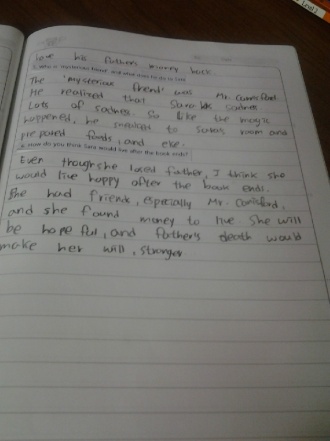 love his father's money back
5. Who is 'mysterious friend' and what does he do to Sara
The 'mysterious friend' was Mr. Carrisford.
He realized that Sara sadness
Lots of sadness. So like the magic
happened, he sneaked to Sara's room and
prepared foods, and etc.
6. How do you think Sara would live after the book ends?
Even though she losed father, I think she
would live happy after the book ends.
She had friends, especially Mr. Carrisford,
and she found money to live. She will
be hopeful, and father's death would
make her will, stronger